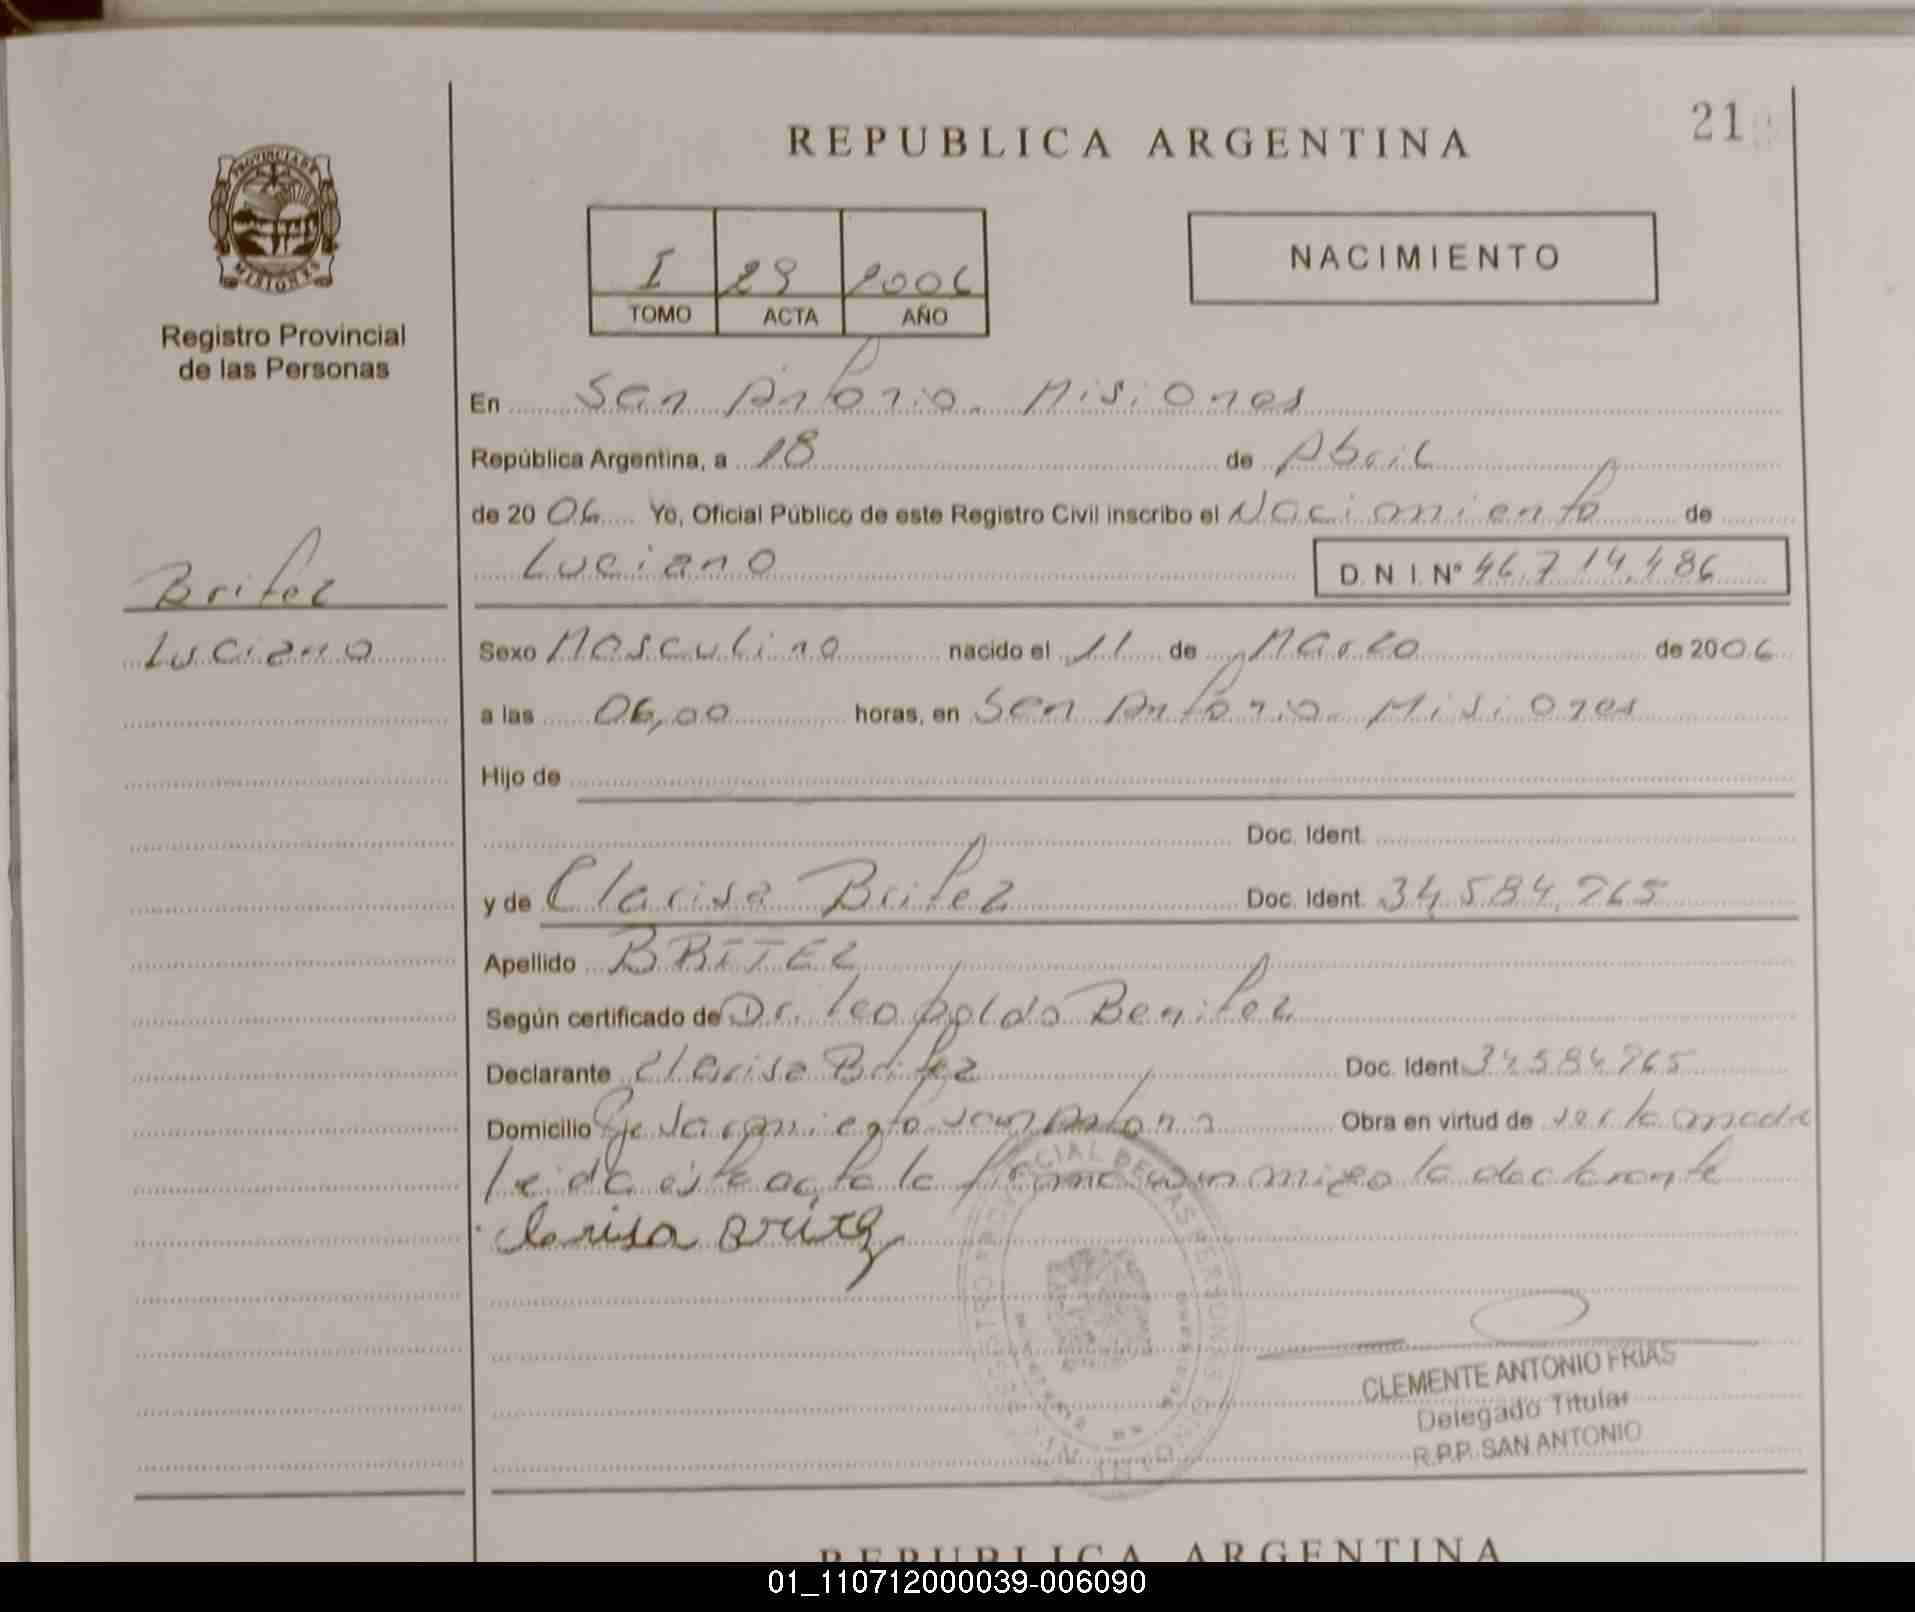 REPUBLICA ARGENTINA
21
PROVINCIA DE
MISIONES
Registro Provincial
de las Personas
I 29 2006
TOMO ACTA AÑO
NACIMIENTO
En San Antonio. Misiones
República Argentina, a 18 de Abril
de 20 06 Yo, Oficial Público de este Registro Civil inscribo el Nacimiento de
Luciano D.N.I. Nº 46.714.486
Britez
Luciano
Sexo Masculino nacido el 11 de Marzo de 2006
a las 06,00 horas, en San Antonio. Misiones
Hijo de
Doc. Ident.
y de Clarisa Britez Doc. Ident. 34.584.265
Apellido BRITEZ
Según certificado de Dr. Leopoldo Benitez
Declarante Clarisa Britez Doc. Ident. 34584265
Domicilio San Antonio Obra en virtud de ser la madre
leida este acta la firma conmigo la declarante
Clarisa Britez
CLEMENTE ANTONIO FRIAS
Delegado Titular
R.P.P. SAN ANTONIO
REPUBLICA ARGENTINA
01_110712000039-006090